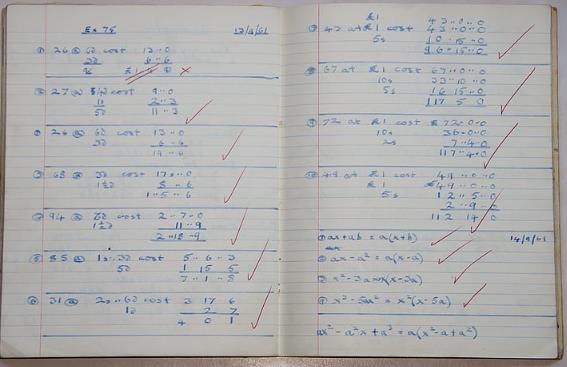 Ex 75 12/9/61
26 @ 6d cost 13..0
3d 6..6
9d
27 @ cost 9..0
1d 2..3
5d 11..3
26 @ 6d cost 13..0
3d 6..6
19..6
68 @ 3d cost 17s..0
1½d 8..6
1..5..6
94 @ 6d cost 2..7..0
1½d 11..9
2..18..9
85 @ 1s..3d cost 5..6..3
5d 1 15 5
7..1..8
31 @ 2s..6d cost 3 17 6
1d 2 7
4 0 1
£1 43..0..0
43 at £1 cost 43..0..0
5s 10..15..0
96..15..0
67 at £1 cost 67..0..0
10s 33..10..0
5s 16 15..0
117 5 0
72 at £1 cost £72..0..0
10s 36..0..0
2s 7..4..0
49 at £1 cost 49..0..0
£1 49..0..0
5s 12..5..0
2..9..0
112 14 0
ax+ab = a(x+b) 14/9/61
ax-a² = a(x-a)
x³-5ax² = x²(x-5a)
ax²-a²x+a³ = a(x²-a+a²)